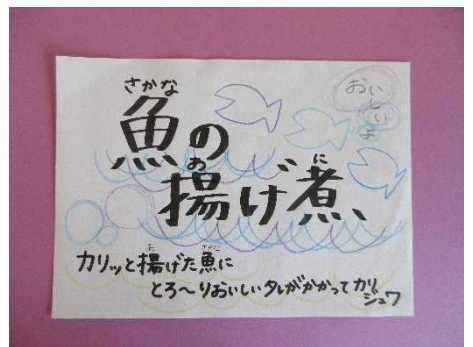 おいしいよ
魚の
揚げ煮
カリッと揚げた魚に
とろ~りおいしいタレがかかってカリ
ジュワ